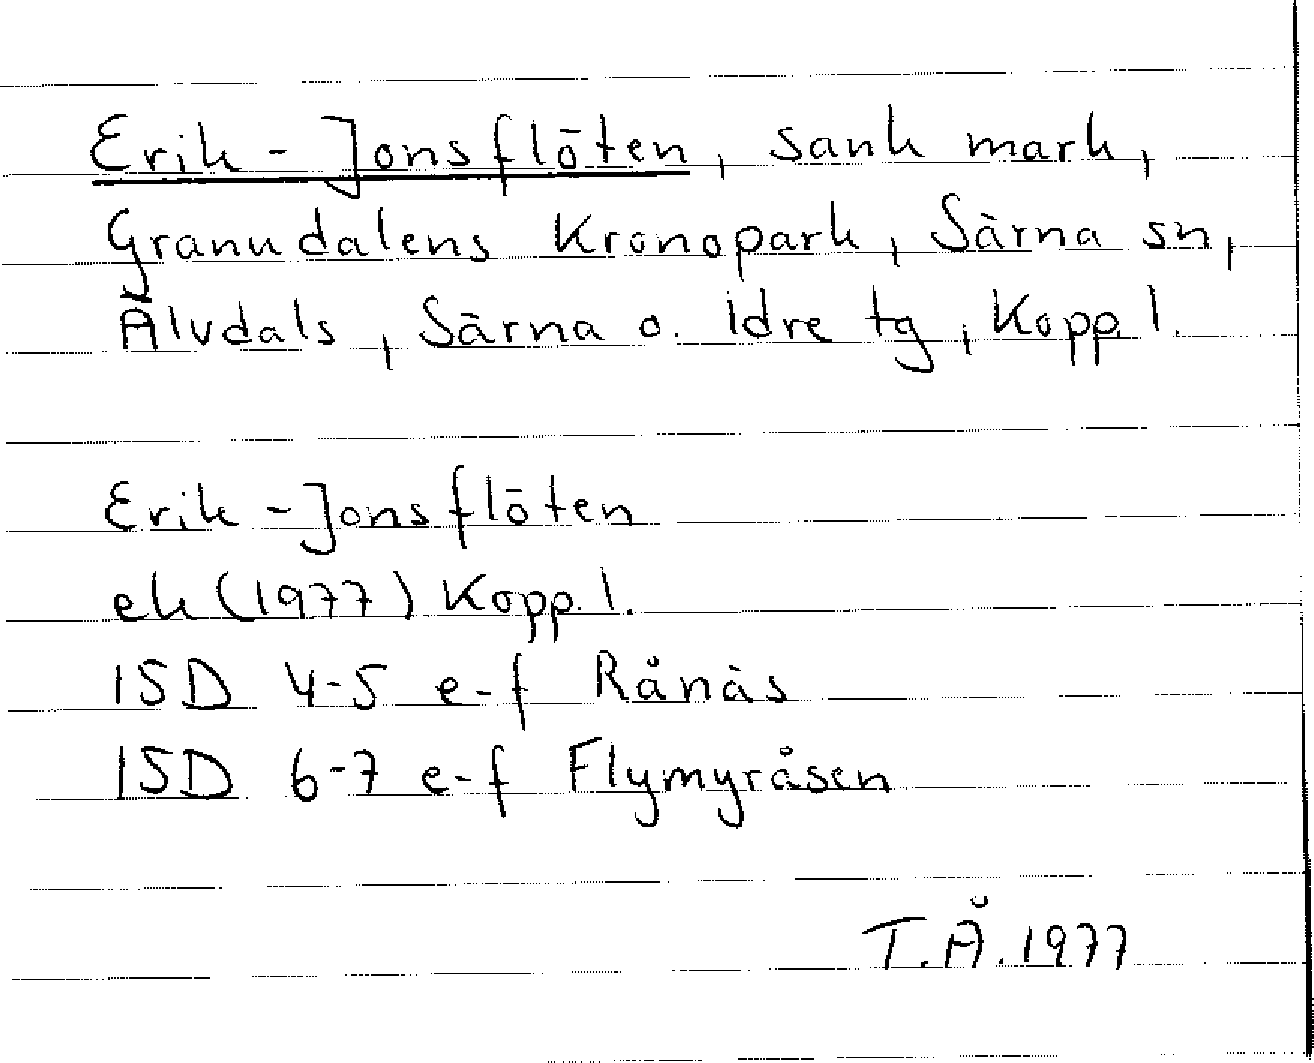 Erik-Jonsflöten, sank mark,
Granudalens Kronopark, Särna sn,
Älvdals, Särna o. Idre tg, Kopp.l.
Erik-Jonsflöten
ek (1977) Kopp.l.
15D 4-5 e-f Rånäs
15D 6-7 e-f Flymyråsen
T.Å. 1977